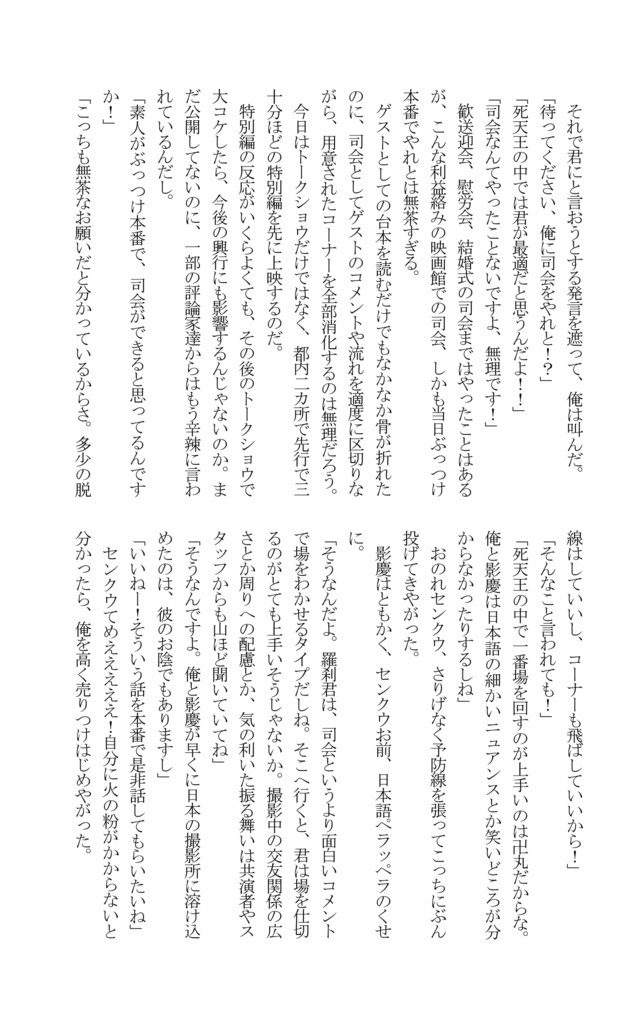 それで君にと言おうとする発言を遮って、俺は叫んだ。
「待ってください、俺に司会をやれと！？」
「死天王の中では君が最適だと思うんだよ！！」
「司会なんてやったことないですよ、無理です！」
歓送迎会、慰労会、結婚式の司会まではやったことはある
が、こんな利益絡みの映画館での司会、しかも当日ぶっつけ
本番でやれとは無茶すぎる。
ゲストとしての台本を読むだけでもなかなか骨が折れた
のに、司会としてゲストのコメントや流れを適度に区切りな
がら、用意されたコーナーを全部消化するのは無理だろう。
今日はトークショウだけではなく、都内二カ所で先行で三
十分ほどの特別編を先に上映するのだ。
特別編の反応がいくらよくても、その後のトークショウで
大コケしたら、今後の興行にも影響するんじゃないのか。ま
だ公開してないのに、一部の評論家達からはもう辛辣に言わ
れているんだし。
「素人がぶっつけ本番で、司会ができると思ってるんです
か！」
「こっちも無茶なお願いだと分かっているからさ。多少の脱
線はしていいし、コーナーも飛ばしていいから！」
「そんなこと言われても！」
「死天王の中で一番場を回すのが上手いのは卍丸だからな。
俺と影慶は日本語の細かいニュアンスとか笑いどころが分
からなかったりするしね」
おのれセンクウ、さりげなく予防線を張ってこっちにぶん
投げてきやがった。
影慶はともかく、センクウお前、日本語ペラッペラのくせ
に。
「そうなんだよ。羅刹君は、司会というより面白いコメント
で場をわかせるタイプだしね。そこへ行くと、君は場を仕切
るのがとても上手いそうじゃないか。撮影中の交友関係の広
さとか周りへの配慮とか、気の利いた振る舞いは共演者やス
タッフからも山ほど聞いていてね」
「そうなんですよ。俺と影慶が早くに日本の撮影所に溶け込
めたのは、彼のお陰でもありますし」
「いいねー！そういう話を本番で是非話してもらいたいね」
センクウてめえええええ！自分に火の粉がかからないと
分かったら、俺を高く売りつけはじめやがった。